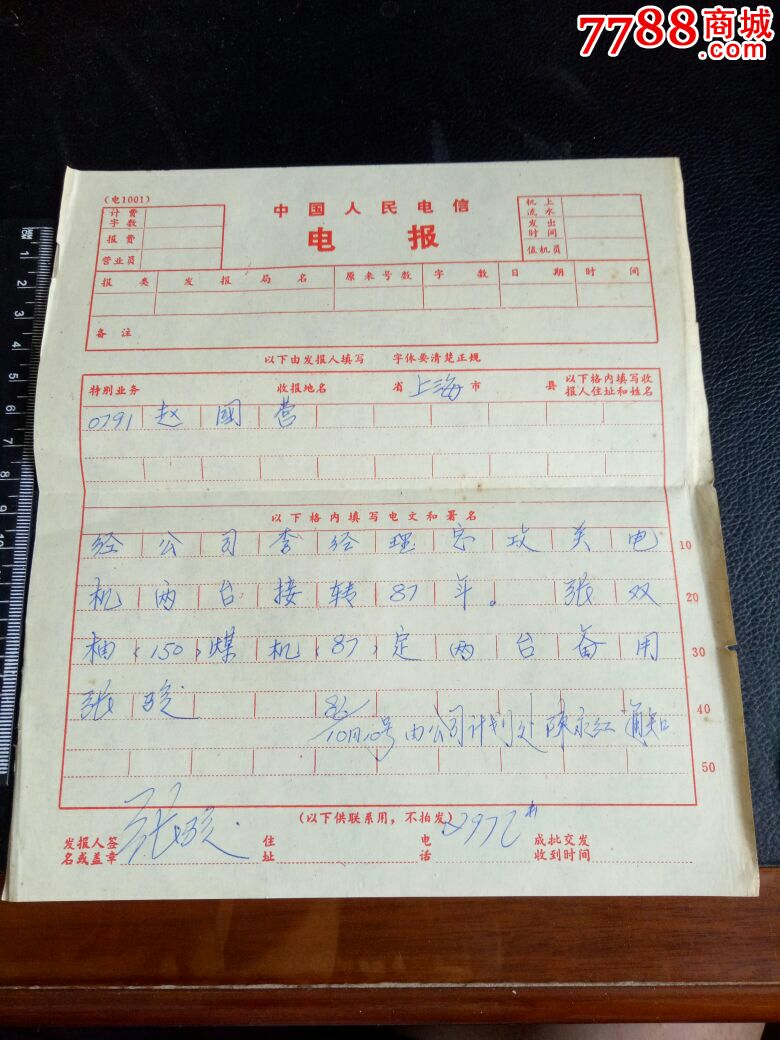 7788商城
.com
(电1001)
中国人民电信
电 报
计费字数
报费
营业员
机上流水
发出时间
值机员
报类 发报局名 原来号数 字数 日期 时间
备注
以下由发报人填写 字体要清楚正规
特别业务 收报地名 省 上海 市 县 以下格内填写收报人住址和姓名
0791 赵 國 营
以下格内填写电文和署名
经 公 司 李 经 理 总 攻 关 电 10
机 两 台 接 转 87 年。 张 双 20
柚〈150〉煤 机〈87〉定 两 台 备 用 30
张 骏 86/10月10号由公司计划处陈永红通知 40
50
(以下供联系用,不拍发)
发报人签名或盖章 张骏 住址 电话 成批交发收到时间